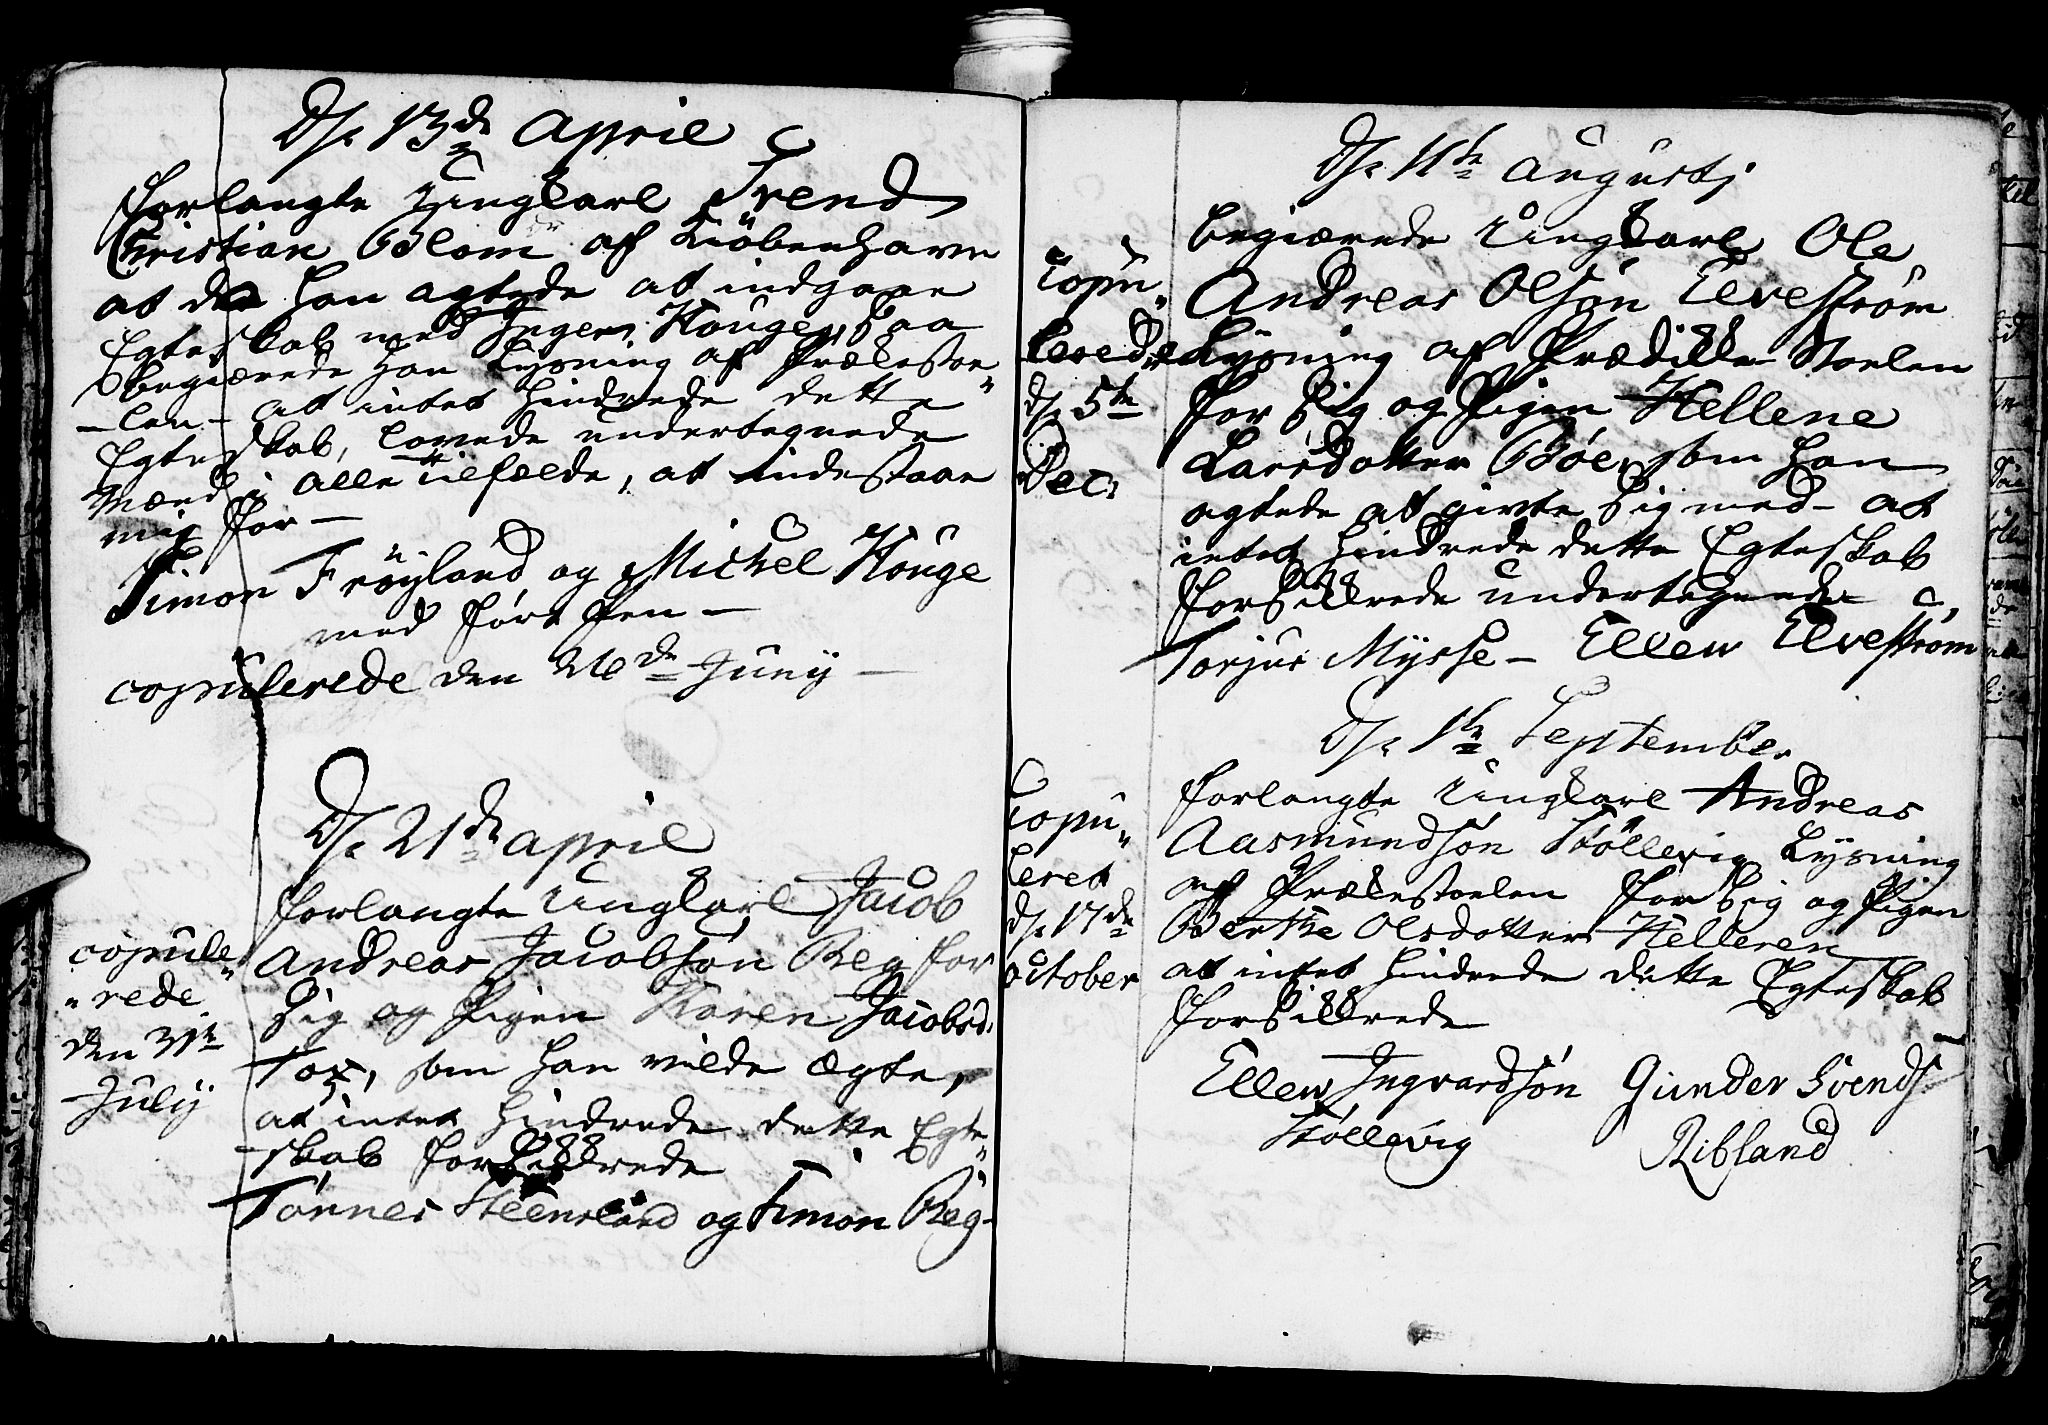 Ds: 13de April
forlangte Ungkarl Trend
Christian Blom af Kiöbenhavn
at da han agtede at indgaae
Egteskab med Inger Houge, saa
begiærede han Lysning af Prækestoe„
-len - at intet hindrede dette
Egteskab, lovede undertegnede
Mænd i alle tilfælde, at indestaae
mig for -
Simon Fröyland og Michel Houge
med före Pen -
copulerede den 26de Juny -
Ds: 21de April
forlangte Ungkarl Jacob
Andreas Jacobsön Reg for
sig og Pigen Karen Jacobsd:
Tox, som han vilde Ægte,
at intet hindrede dette Egte„
skab forsikkrede
Tönnes Steensland og Simon Reg-
copule„
„rede
den 31te
July
Ds. 11te Augustj
begiærede Ungkarl Ole
Andreas Olsön Elveström
Lysning af Prædikke Stoelen
for sig og Pigen Hellene
Larsdatter Böe, som han
agtede at givte sig med - at
intet hindrede dette Egteskab
forsikkrede undertegnede
Torjus Mysse - Ellew Elveström
Copu„
lerede
ds 5te
Dec:
Ds. 1te September
forlangte Ungkarl Andreas
Aasmundsön Stöllevig Lysning
af Prækestoelen for sig og Pigen
Berthe Olsdatter Helleren
at intet hindrede dette Egteskab
forsikkrede
Ellew Ingvardsön Gunder Svends
Stöllevig Ribland
Copu„
leret
ds. 17de
october